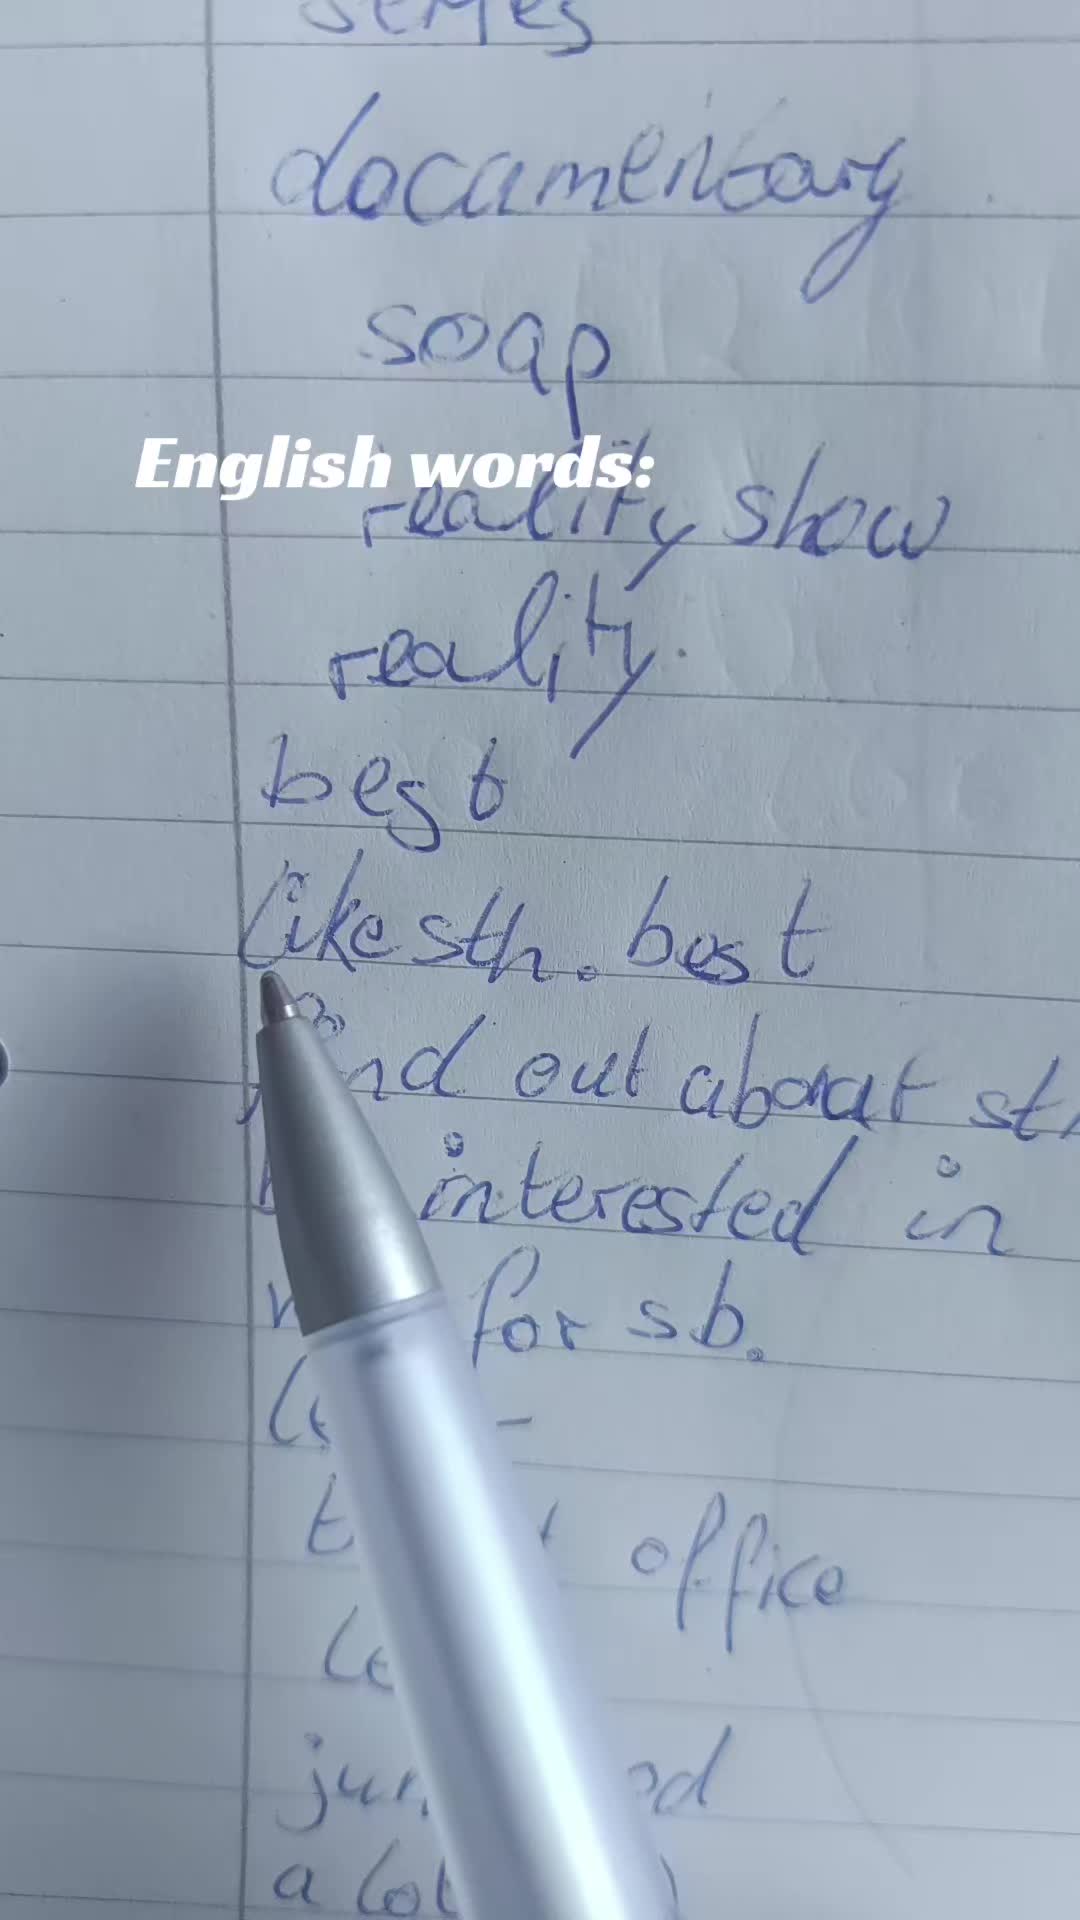 series
documentary
soap
English words:
reality show
reality.
best
like sth. best
out about
interested in
for sb.
office
a lot